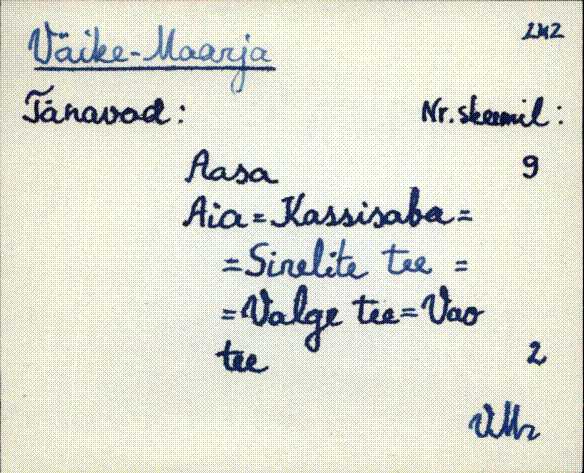 Väike-Maarja 242
Tänavad: Nr. skeemil:
Aasa 9
Aia = Kassisaba =
= Sirelite tee =
= Valge tee = Vao
tee 2
VMr